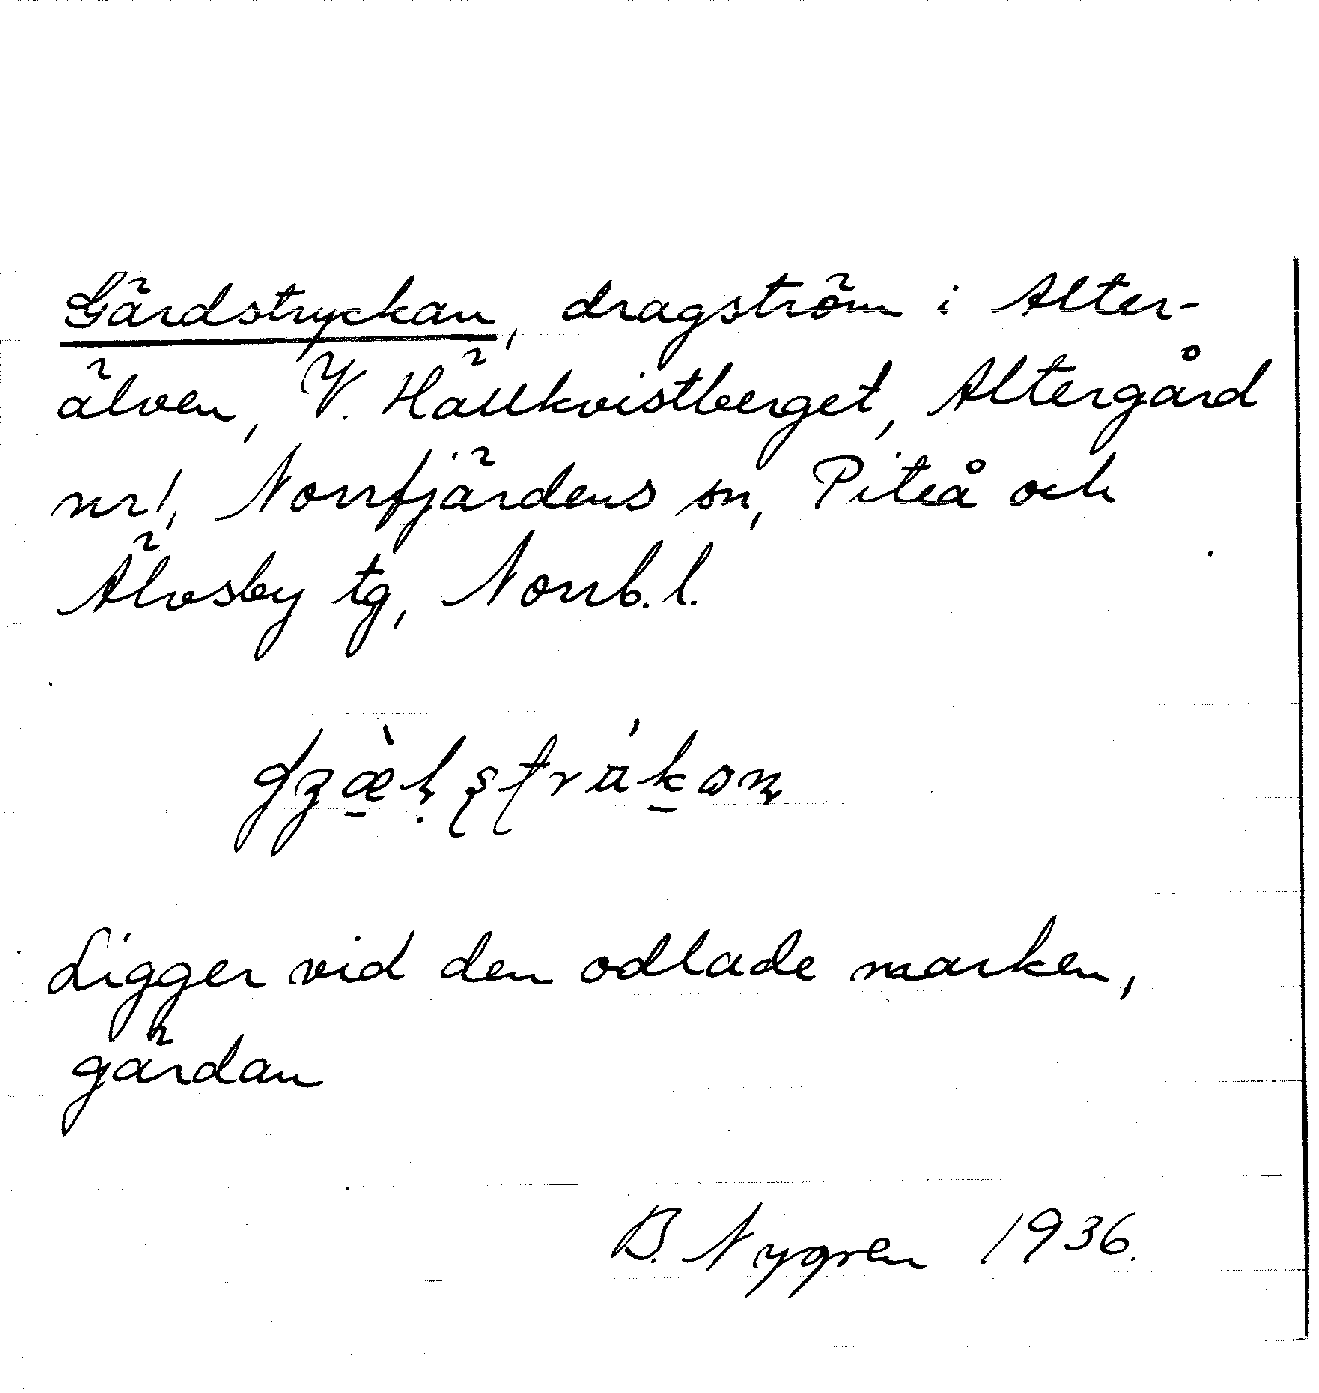 Gärdstryckan, dragström i Alter-
älven, V. Hällkvistberget, Altergård
nr 1, Norrfjärdens sn, Piteå och
Älvsby tg, Norrb. l.
Ligger vid den odlade marken,
gärdan
B. Nygren 1936.